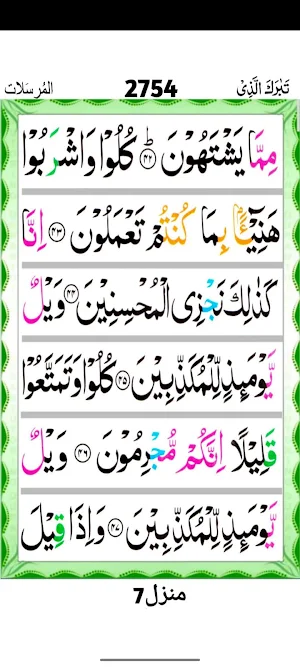 تَبٰرَكَ الَّذِیْ 2754 المُرسَلات
مِمَّا یَشْتَهُوْنَ ؕ﴿۴۲﴾ كُلُوْا وَ اشْرَبُوْا
هَنِیْٓـًٔۢا بِمَا كُنْتُمْ تَعْمَلُوْنَ ﴿۴۳﴾ اِنَّا
كَذٰلِكَ نَجْزِی الْمُحْسِنِیْنَ ﴿۴۴﴾ وَیْلٌ
یَّوْمَىِٕذٍ لِّلْمُكَذِّبِیْنَ ﴿۴۵﴾ كُلُوْا وَ تَمَتَّعُوْا
قَلِیْلًا اِنَّكُمْ مُّجْرِمُوْنَ ﴿۴۶﴾ وَیْلٌ
یَّوْمَىِٕذٍ لِّلْمُكَذِّبِیْنَ ﴿۴۷﴾ وَ اِذَا قِیْلَ
منزل7